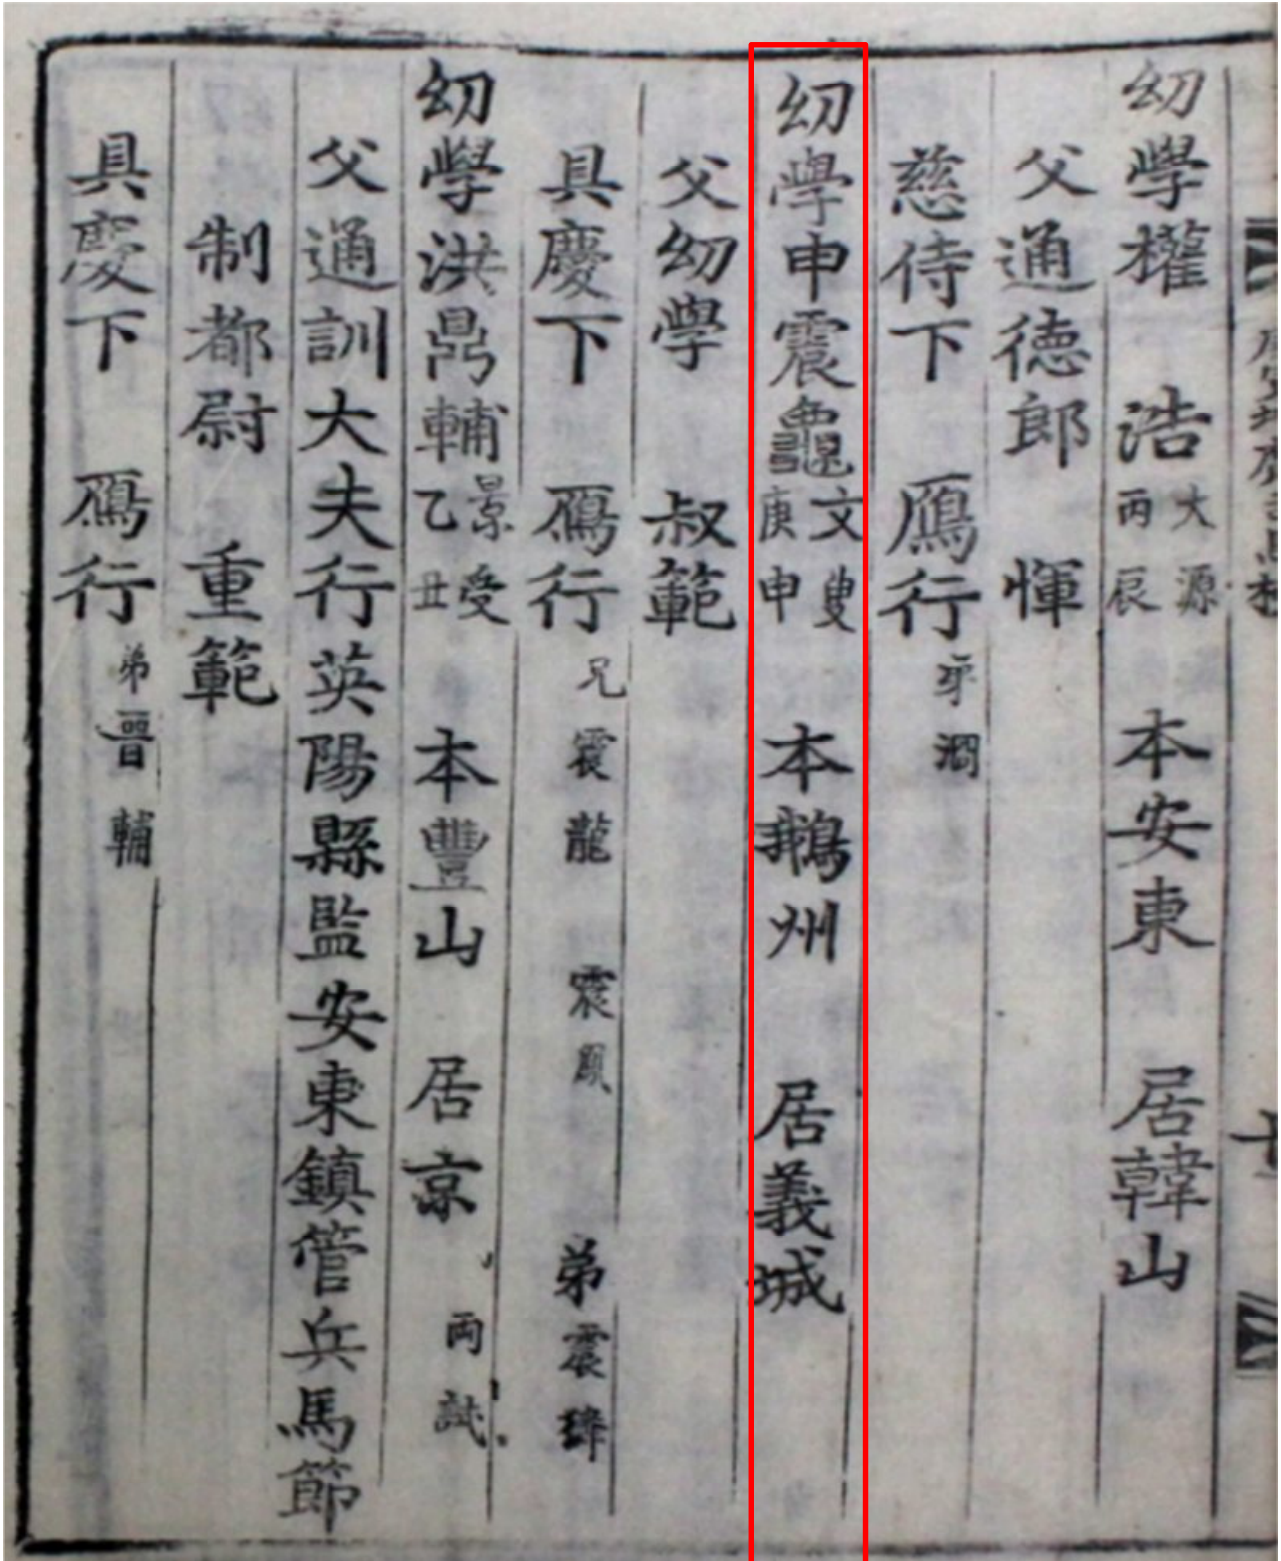 幼學權 浩 大源 丙辰 本安東 居韓山
父通德郎 惲
慈侍下 鴈行
幼學申震龜 文叟 庚申 本鵝州 居義城
父幼學 叔範
具慶下 鴈行 兄震龍 震 弟震
幼學洪鼎輔 景受 乙丑 本豐山 居京 兩試
父通訓大夫行英陽縣監安東鎮管兵馬節
制都尉 重範
具慶下 鴈行 弟晋輔